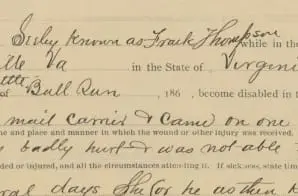 Seeley Known as Frank Thompson while in the
lle Va in the State of Virgini
of Bull Run, 186 , become disabled in t
mail carrier & came on one
me and place and manner in which the wound or other injury was received.
badly hurt & was not able
ded or injured, and all the circumstances attending it. If sickness, state tim
ral days She (or he as then k